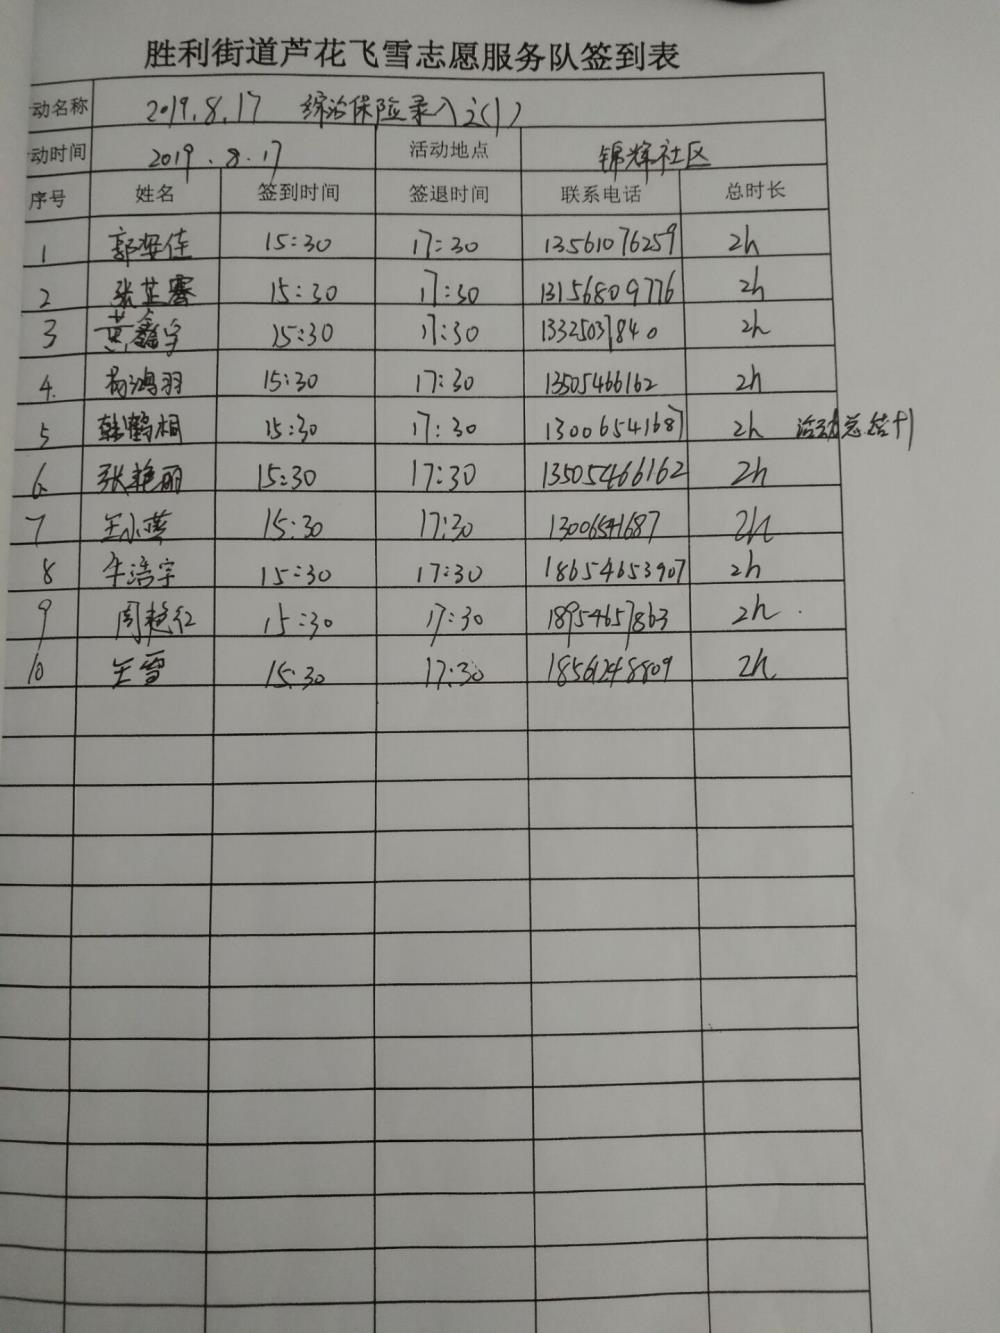 胜利街道芦花飞雪志愿服务队签到表
动名称 2019.8.17 综治保险录入之(1)
动时间 2019.8.17 活动地点 锦辉社区
序号 姓名 签到时间 签退时间 联系电话 总时长
1 郭安佳 15:30 17:30 13561076259 2h
2 张芷騫 15:30 17:30 13156809776 2h
3 黄鑫宇 15:30 17:30 13325037840 2h
4. 杨鸿羽 15:30 17:30 13505466162 2h
5 韩鹤桐 15:30 17:30 13006541687 2h 活动总结
6 张艳丽 15:30 17:30 13505466162 2h
7 王小燕 15:30 17:30 13006541687 2h
8 牛浩宇 15:30 17:30 18654653907 2h
9 周艳红 15:30 17:30 18954657863 2h
10 王雪 15:30 17:30 18561248809 2h